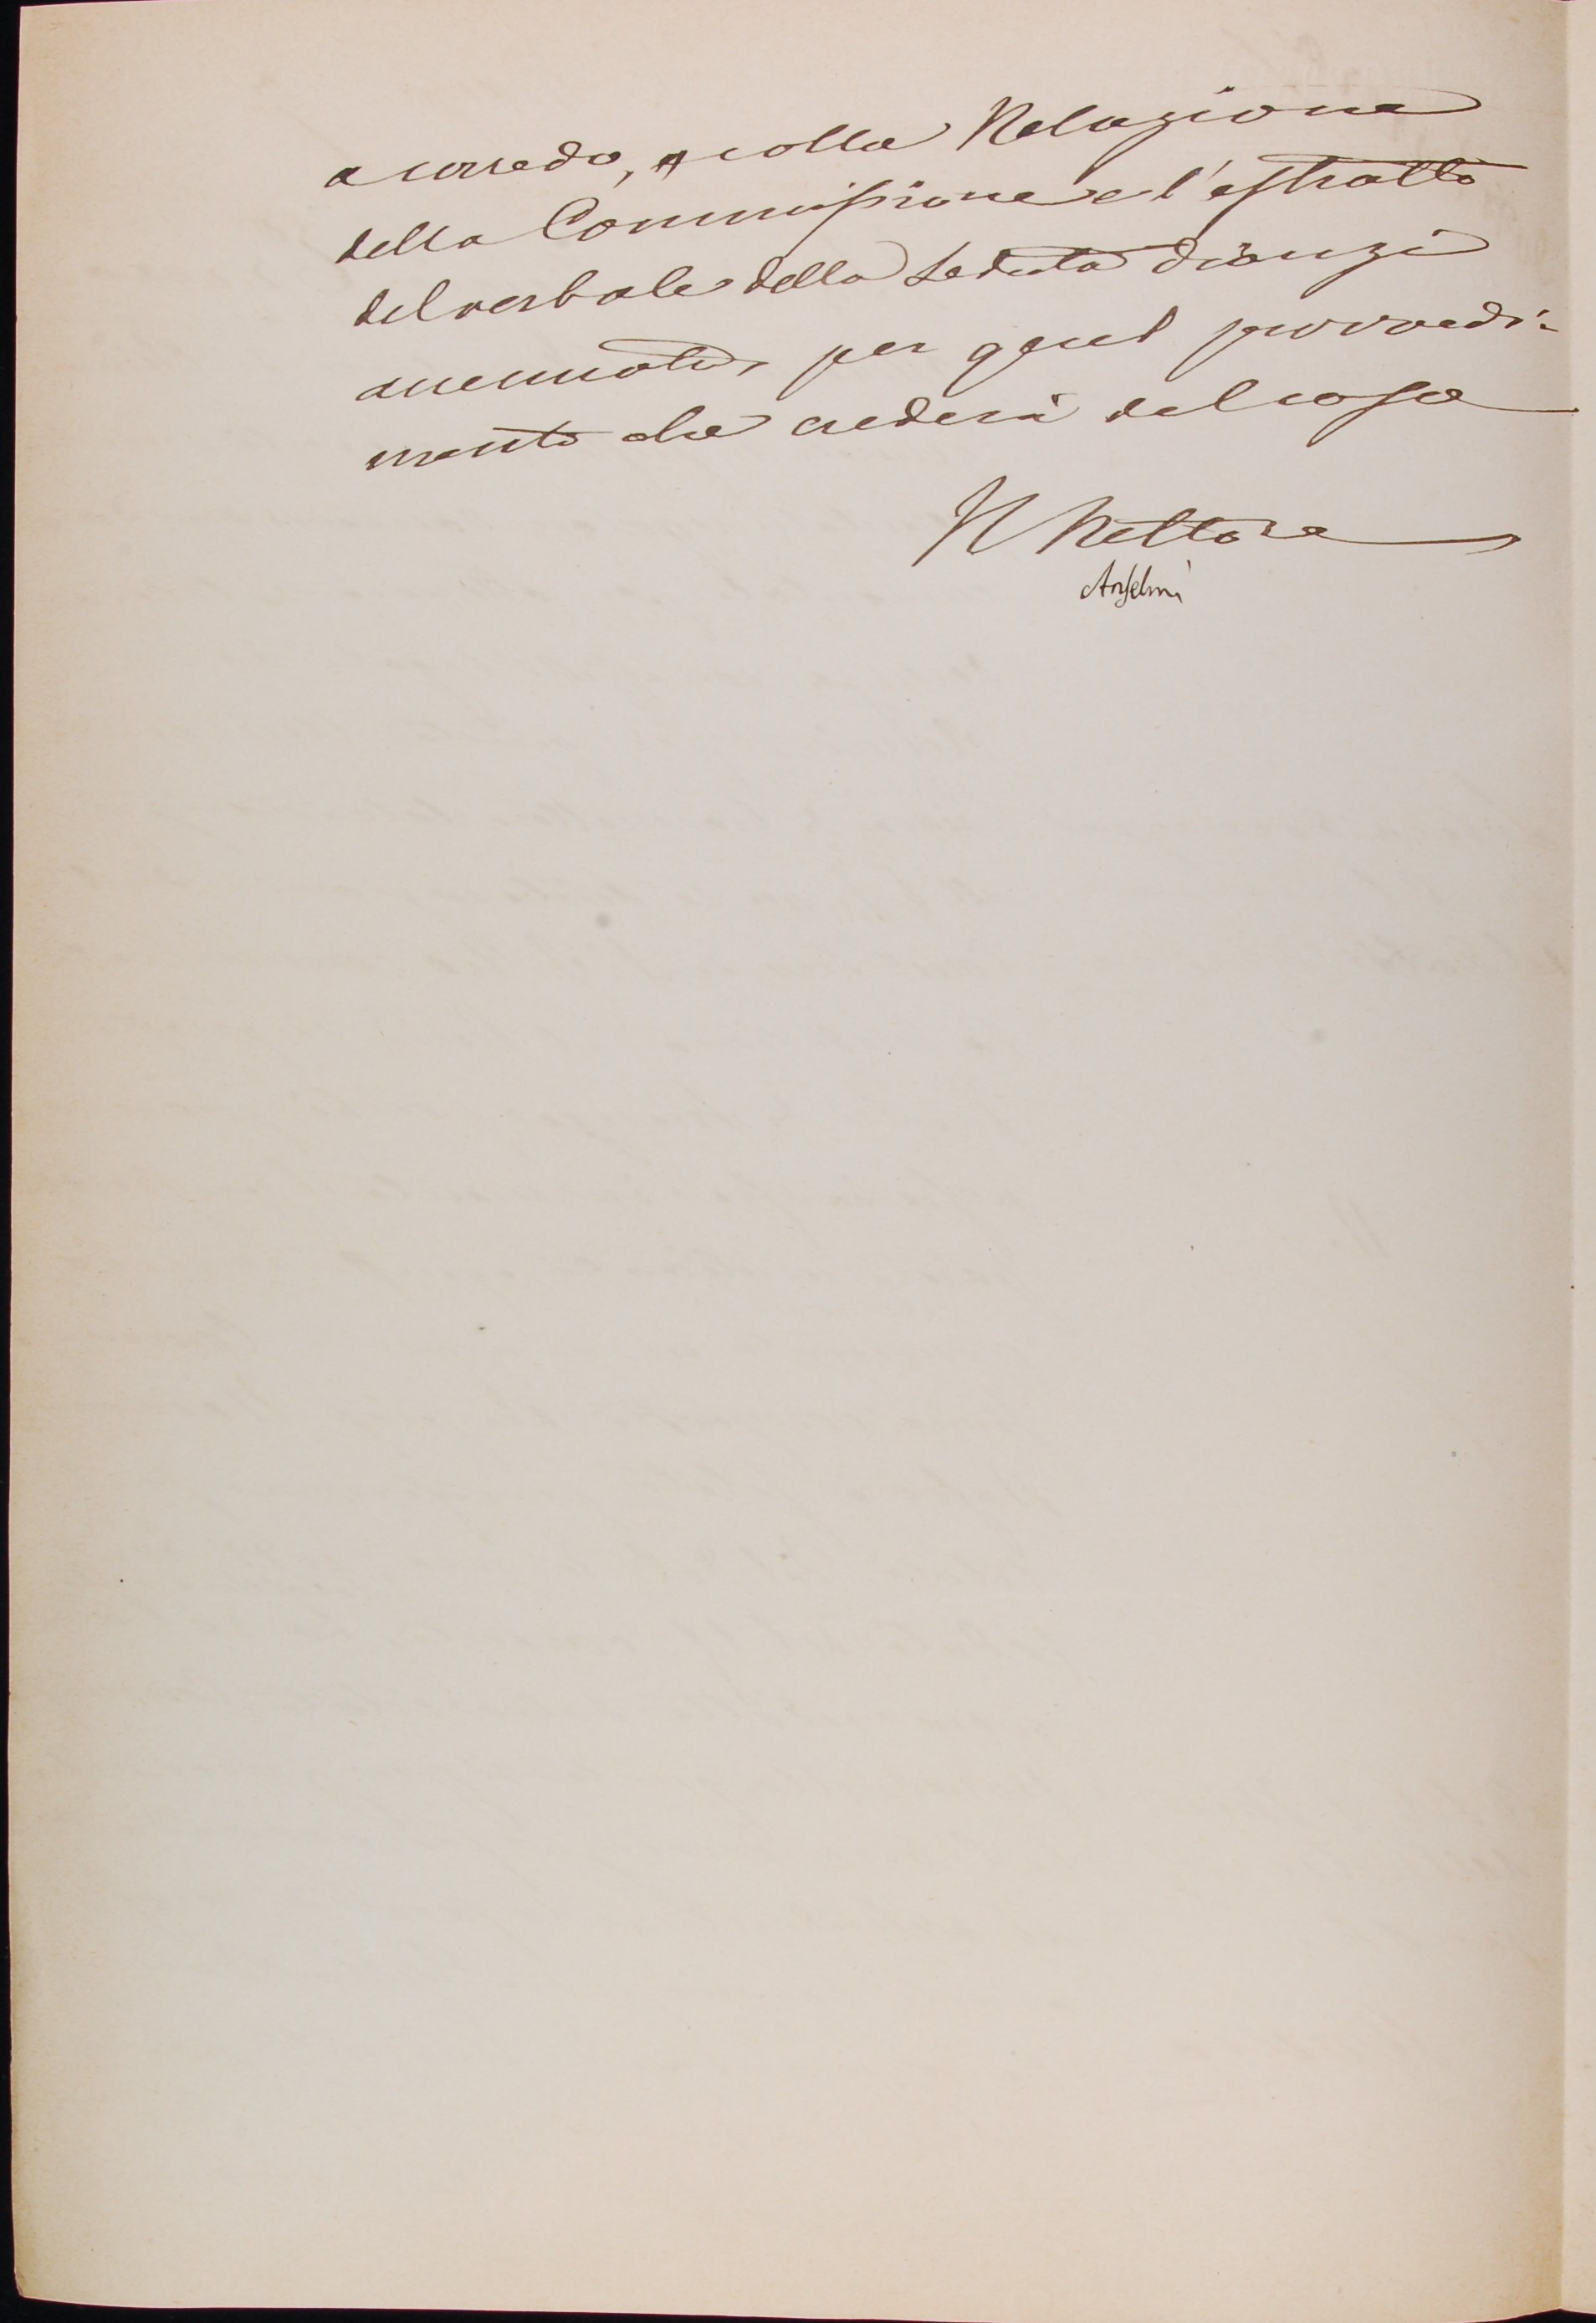 a corredo, e colla Relazione
della Commissione e l'estratto
del verbale della Seduta dianzi
accennata, per quel provvedi-
mento che crederà del caso
Il Rettore
Anselmi